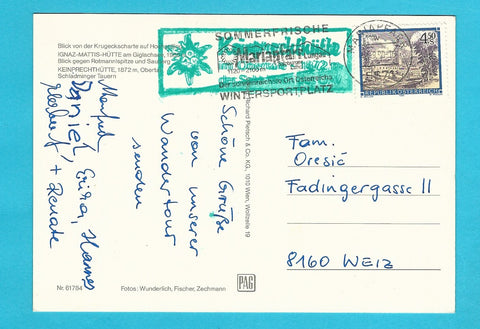 Blick von der Krugeckscharte auf Hochgolling
IGNAZ-MATTIS-HÜTTE am Giglachsee, 1986 m
Blick gegen Rotmannlspitze und Sauberg
KEINPRECHTHÜTTE, 1872 m, Obertal
Schladminger Tauern
SOMMERFRISCHE
Mariapfarr
Der sonnenreichste Ort Österreichs
WINTERSPORTPLATZ
4.50
REPUBLIK ÖSTERREICH
Schöne Grüße
von unserer
Wandertour
senden
Manfred
Daniel, Erika, Hannes
Herbert + Renate
Fam.
Orešić
Fadingergasse 11
8160 WEIZ
Richard Pietsch & Co. KG., 1010 Wien, Wollzeile 19
Nr. 61784
Fotos: Wunderlich, Fischer, Zechmann
PAG